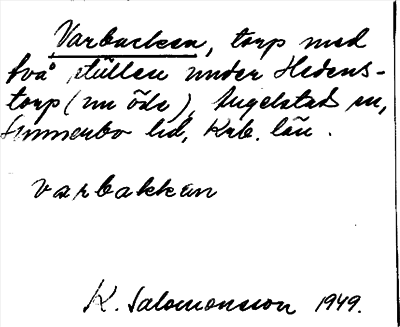 Varbacken, torp med
två ställen under Hedens-
torp (nu öde), Angelstad sn,
Sunnerbo hd, Krb. län.
varbakken
K. Salomonsson 1949.